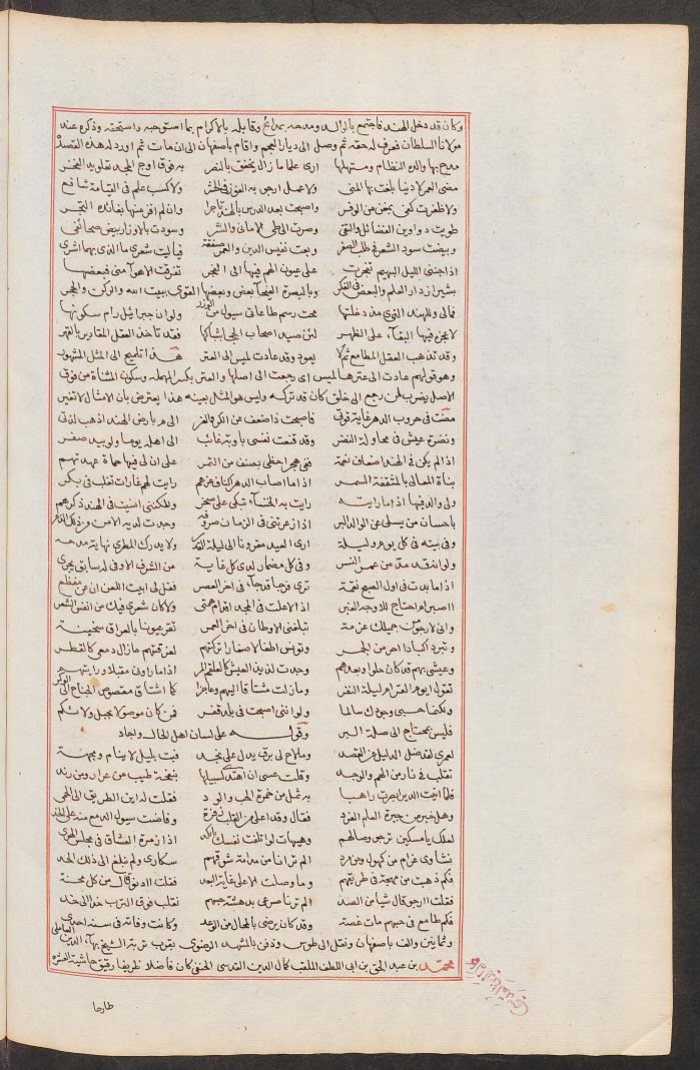 وكان قد دخل الهند فاجتمع بالوالد ومدحه بمدائح وقابله بالاكرام بما استوجبه واستحقه وذكره عند
مولانا السلطان فعرف له حقه ثم وصل الى ديار العجم واقام باصفهان الى ان مات ثم اورد له هذه القصيدة
مدح بها والده النظام ومستهلها ارى علما ما زال يخفق بالنصر به فوق اوج المجد تعلو يد الفخر
مضى العمر لا دنيا بلغت بها المنى ولا عمل ارجو به الفوز في الحشر ولا كسب علم في القيامة شافع
ولا ظفرت كفى بمغن من الوفر واصبحت بعد الدرس بالهند تاجرا وان لم افز منها بفائدة التجر
طويت دواوين الفضائل والتقى وصرت الى طي الامانى والنشر وسودت بالاوزار بيض صحائفى
وبيضت سود الشعر في طلب الصفر وبعت نفيس الدين والعمر صفقة فياليت شعرى ما الذى بهما اشرى
اذا جننى الليل البهيم تفجرت على عيون الهم فيها الى الفجر تفرقت الاهوآ منى فبعضها
بشيراز دار العلم والبعض في الفكر وبالبصرة الفيحآ بعض وبعضها القوى ببيت الله والركن والحجر
فمالى وللهند التى مذ دخلتها محت رسم طاعاتى سيول من الوزر ولو ان جبرائيل رام سكونها
لاعجز فيها البقآء على الطهر لئن صيد اصحاب الحجى بشباكها فقد تاخذ العقل المقادير بالقهر
وقد تذهب العقل المطامع ثم لا يعود وقد عادت لميس الى العتر هذا تلميح الى المثل المشهور
وهو قولهم عادت الى عترها لميس اى رجعت الى اصلها والعتر بكسر المهملة وسكون المثناة من فوق
الاصل يضرب لمن رجع الى خلق كان قد تركه وليس هو المثل بعينه هذا يعترض بان الامثال لا تغير
مضت فى حروب الدهر غاية قوتى فاصبحت ذا ضعف عن الكر والفر الى م بارض الهند اذهب لذتى
ونضرة عيش فى محاولة النضر وقد قنعت نفسى باوبة غائب الى اهله يوما ولو بيد صفر
اذا لم يكن فى الهند اصناف نعمة ففى هجر احظى بصنف من التمر على ان لى فيها حماة عهدتهم
بناة المعالى بالمثقفة السمر اذا ما اصاب الدهر اكناف عزهم رايت لهم غارات تغلب فى بكر
ولى والد فيها اذا ما رايته رايت به الخنسآء تبكى على صخر ولكننى انسيت فى الهند ذكرهم
باحسان من يسلى عن الوالد البر اذا ازعجتنى فى الزمان صروفه وجدت لديه الامن من ذلك الذعر
وفى بيته فى كل يوم وليلة ارى العيد مقرونا الى ليلة القدر ولا يدرك المطرى نهاية مدحه
ولو انه قد مد من عمر النسر وفى كل مضمار لدى كل غاية من الشرف الاوفى له سابق يجرى
اذا ما بدت فى اول الصبح نقمة ترى فرجا قد جآء فى آخر العصر فقل لى ابيت اللعن ان عن مقطم
ااصبر ام احتاج للاوجه الغبر اذا لا علت فى المجد اقدام همتى ولا كان شعرى فيك من انفس الشعر
وانى لارجو من جميلك عزمة تبلغنى الاوطان فى آخر العمر تقر عيونا بالعراق سخينة
وتبرد اكبادا احر من الجمر وتونس اطفالا صغارا تركتهم لفرقتهم ما زال دمعى كالقطر
وعيشى بهم قد كان حلوا وبعدهم وجدت لذيذ العيش كالعلقم المر اذا ما راونى مقبلا ورايتهم
تقول ايوم القر ام ليلة القدر وما زلت مشتاقا اليهم وعاجزا كما اشتاق مقصوص الجناح الى الوكر
ولكنما حسبى وجودك سالما ولو اننى اصبحت فى بلد قفر فمن كان موصولا بحبل ولائكم
فليس بمحتاج الى صلة البر وقوله على لسان اهل الحال واجاد
لعمرى لقد ضل الدليل عن القصد وما لاح لى برق يدل على نجد فبت بليل لا ينام ومهجة
تقلب فى نار من الهم والوجد وقلت عسى ان اهتدى لسبيلها بنفحة طيب من عرار ومن رند
فلما اتيت الدير ابصرت راهبا به ثمل من خمرة الحب والود فقلت له اين الطريق الى الحمى
وهل خبر من جيرة العلم الفرد فقال وقد اعلى من القلب زفرة وفاضت سيول الدمع منه على الخد
لعلك يا مسكين ترجو وصالهم وهيهات لو اتلفت نفسك بالكد اذا زمرة العشاق فى مجلس الهوى
نشاوى غرام من كهول ومن مرد الم ترانا من مدامة شوقهم سكارى ولم نبلغ الى ذلك الحد
فكم ذهبت من مهجة فى طريقهم وما وصلت الا على غاية البعد فقلت اادنو قال من كل محنة
فقلت اارجو قال شيا من الصد الم ترنا صرعى بدهشة حبهم نقلب فوق الترب خدا الى خد
فكم طامع فى حبهم مات غصة وقد كان يرضى بالمحال من الوعد وكانت وفاته فى سنة احدى
وثمانين والف باصفهان ونقل الى طوس ودفن بالمشهد الرضوى بقرب تربة الشيخ بهآء الدين العاملى
محمد بن عبد الحق بن ابى اللطف الملقب كمال الدين القدسى الحنفى كان فاضلا ظريفا رقيق حاشية العشرة
طارحا